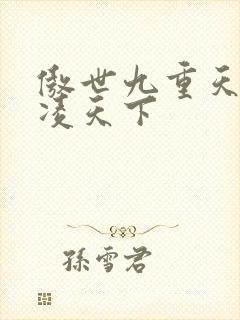 傲世九重天
凌天下
孫雪君